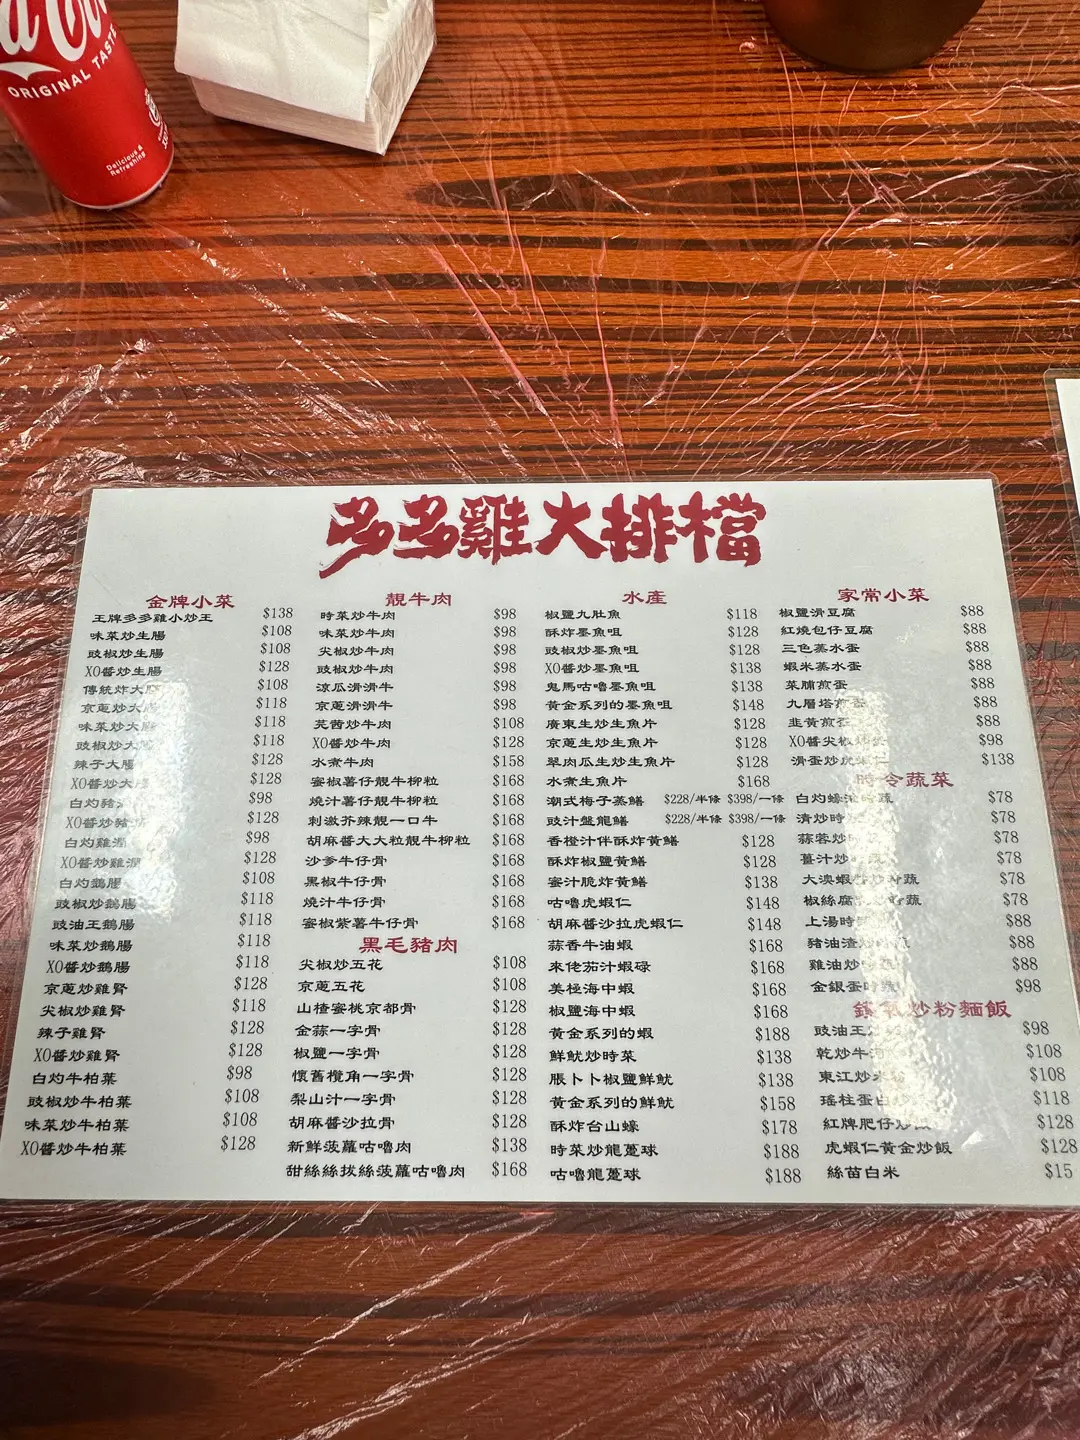 ORIGINAL TASTE
Delicious &
Refreshing
多多雞大排檔
金牌小菜
王牌多多雞小炒王 $138
味菜炒生腸 $108
豉椒炒生腸 $108
XO醬炒生腸 $128
傳統炸大 $108
京蔥炒大 $118
味菜炒大 $118
豉椒炒大 $118
辣子大腸 $128
XO醬炒大 $128
白灼豬 $98
XO醬炒豬 $128
白灼雞潤 $98
XO醬炒雞潤 $128
白灼鵝腸 $108
豉椒炒鵝腸 $118
豉油王鵝腸 $118
味菜炒鵝腸 $118
XO醬炒鵝腸 $118
京蔥炒雞腎 $128
尖椒炒雞腎 $118
辣子雞腎 $128
XO醬炒雞腎 $128
白灼牛柏葉 $98
豉椒炒牛柏葉 $108
味菜炒牛柏葉 $108
XO醬炒牛柏葉 $128
靚牛肉
時菜炒牛肉 $98
味菜炒牛肉 $98
尖椒炒牛肉 $98
豉椒炒牛肉 $98
涼瓜滑滑牛 $98
京蔥滑滑牛 $98
芫茜炒牛肉 $108
XO醬炒牛肉 $128
水煮牛肉 $158
蜜椒薯仔靚牛柳粒 $168
燒汁薯仔靚牛柳粒 $168
刺激芥辣靚一口牛 $168
胡麻醬大大粒靚牛柳粒 $168
沙爹牛仔骨 $168
黑椒牛仔骨 $168
燒汁牛仔骨 $168
蜜椒紫薯牛仔骨 $168
黑毛豬肉
尖椒炒五花 $108
京蔥五花 $108
山楂蜜桃京都骨 $128
金蒜一字骨 $128
椒鹽一字骨 $128
懷舊欖角一字骨 $128
梨山汁一字骨 $128
胡麻醬沙拉骨 $128
新鮮菠蘿咕嚕肉 $138
甜絲絲拔絲菠蘿咕嚕肉 $168
水產
椒鹽九肚魚 $118
酥炸墨魚咀 $128
豉椒炒墨魚咀 $128
XO醬炒墨魚咀 $138
鬼馬咕嚕墨魚咀 $138
黃金系列的墨魚咀 $148
廣東生炒生魚片 $128
京蔥生炒生魚片 $128
翠肉瓜生炒生魚片 $128
水煮生魚片 $168
潮式梅子蒸鱔 $228/半條 $398/一條
豉汁盤龍鱔 $228/半條 $398/一條
香橙汁伴酥炸黃鱔 $128
酥炸椒鹽黃鱔 $128
蜜汁脆炸黃鱔 $138
咕嚕虎蝦仁 $148
胡麻醬沙拉虎蝦仁 $148
蒜香牛油蝦 $168
來佬茄汁蝦碌 $168
美極海中蝦 $168
椒鹽海中蝦 $168
黃金系列的蝦 $188
鮮魷炒時菜 $138
脹卜卜椒鹽鮮魷 $138
黃金系列的鮮魷 $158
酥炸台山蠔 $178
時菜炒龍躉球 $188
咕嚕龍躉球 $188
家常小菜
椒鹽滑豆腐 $88
紅燒包仔豆腐 $88
三色蒸水蛋 $88
蝦米蒸水蛋 $88
菜脯煎蛋 $88
九層塔煎蛋 $88
韭黃煎蛋 $88
XO醬尖椒 $98
滑蛋炒虎蝦仁 $138
時令蔬菜
白灼 時蔬 $78
清炒時 $78
蒜蓉炒時 $78
薑汁炒 $78
大澳蝦醬炒時蔬 $78
椒絲腐乳炒時蔬 $78
上湯時 $88
豬油渣炒時蔬 $88
雞油炒時蔬 $88
金銀蛋時蔬 $98
鑊氣炒粉麵飯
豉油王炒 $98
乾炒牛河 $108
東江炒米粉 $108
瑤柱蛋白炒飯 $118
紅牌肥仔炒飯 $128
虎蝦仁黃金炒飯 $128
絲苗白米 $15